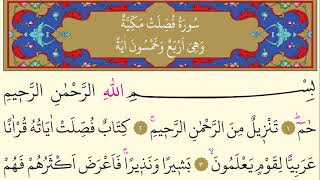 سُورَةُ فُصِّلَتْ مَكِّيَّةٌ
وَهِيَ اَرْبَعٌ وَخَمْسُونَ اٰيَةً
بِسْمِ اللّٰهِ الرَّحْمٰنِ الرَّحِيمِ
حٰمٓ ﴿١﴾ تَنْزِيلٌ مِنَ الرَّحْمٰنِ الرَّحِيمِ ﴿٢﴾ كِتَابٌ فُصِّلَتْ اٰيَاتُهُ قُرْاٰنًا
عَرَبِيًّا لِقَوْمٍ يَعْلَمُونَ ﴿٣﴾ بَشِيرًا وَنَذِيرًا فَاَعْرَضَ اَكْثَرُهُمْ فَهُمْ